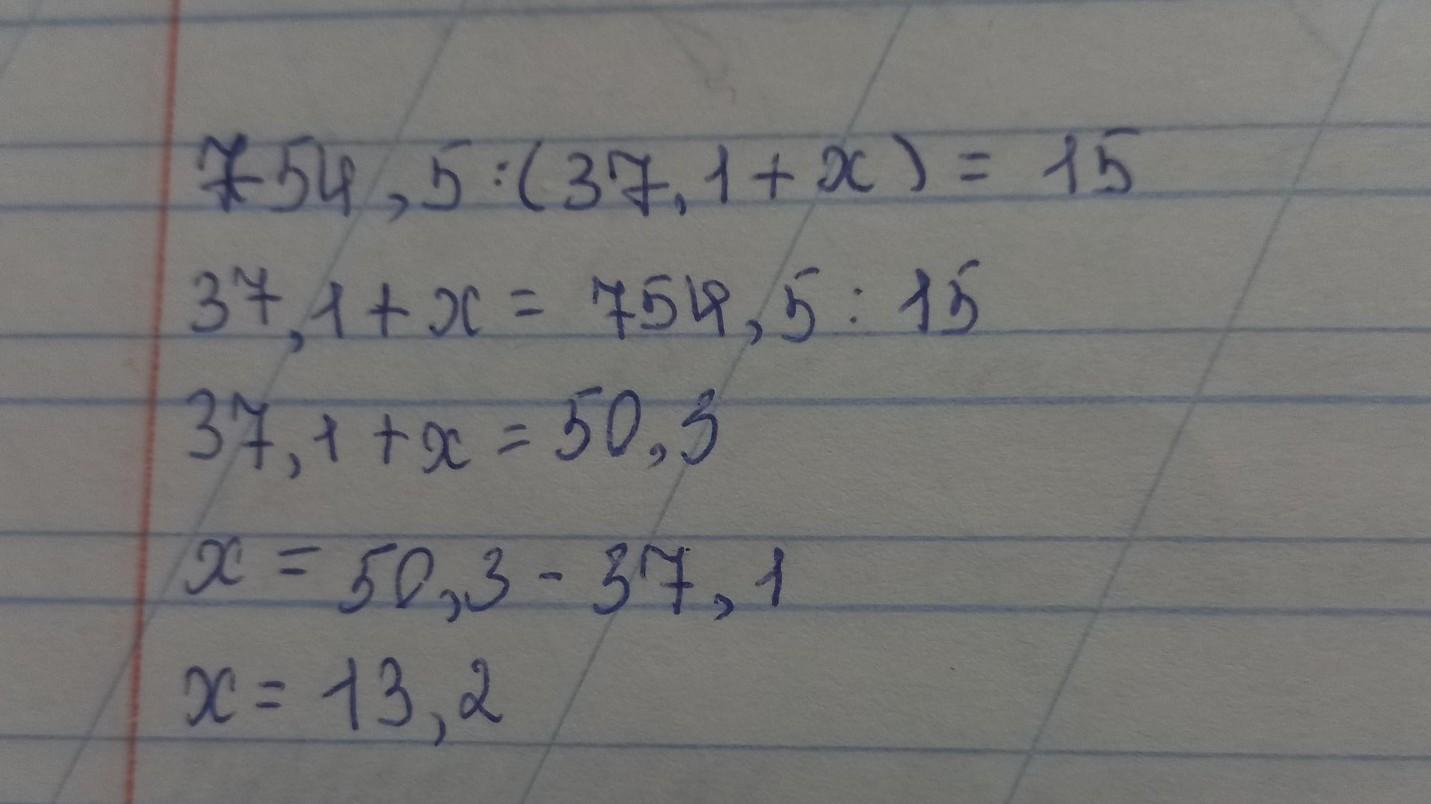 754,5:(37,1+x)=15
37,1+x=754,5:15
37,1+x=50,3
x=50,3-37,1
x=13,2